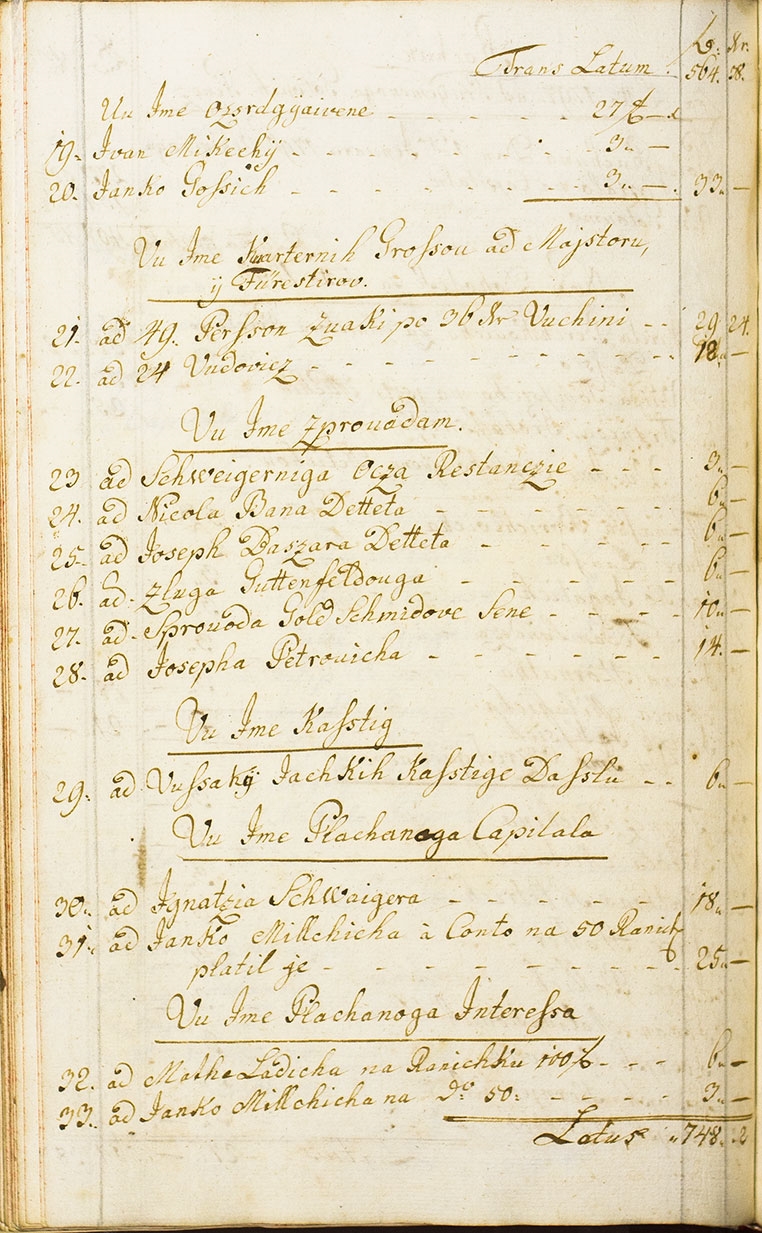 f: Kr.
Trans Latum. 564. 38.
Vu Ime Ozzrdgyaivene - - - - 27 f — x
19. Ivan Mikechÿ - - - - 3 „ —
20. Janko Gossich - - - - 3 „ — . 33 „ —
Vu Ime Kvarternih Grossou ad Majstoru,
ÿ Fürestirov.
21. ad 49. Persson zvaki po 36 Kr Vuchini - - 29 24.
22. ad 24 Vudovicz - - - - 18 „ —
Vu Ime zprouadam.
23 ad Schweigerniga Ocza Restanczie - - - 3 „ —
24. ad Nicola Bana Detteta - - - - 6 „ —
25. ad Joseph Daszara Detteta - - - - 6 „ —
26. ad. zluga Guttenfeldouga - - - - 6 „ —
27. ad. Sprouoda Gold Schmidove Sene - - - - 10 „ —
28. ad Josepha Petrovicha - - - - 14. —
Vu Ime Kasstig
29. ad Vussakÿ Jachkih Kasstige Dasslu - - 6 „ —
Vu Ime Plachanoga Capitala
30. ad Ignatzia Schwaigera - - - - 18 „ —
31. ad Janko Millchicha à Conto na 50 Ranich
platil je - - - - 25 „ —
Vu Ime Plachanoga Interessa
32. ad Mathe Ladicha na Ranichku 100 f - - - 6 „ —
33. ad Janko Millchicha na do 50. - - - - 3 „ —
Latus „ 748. 2